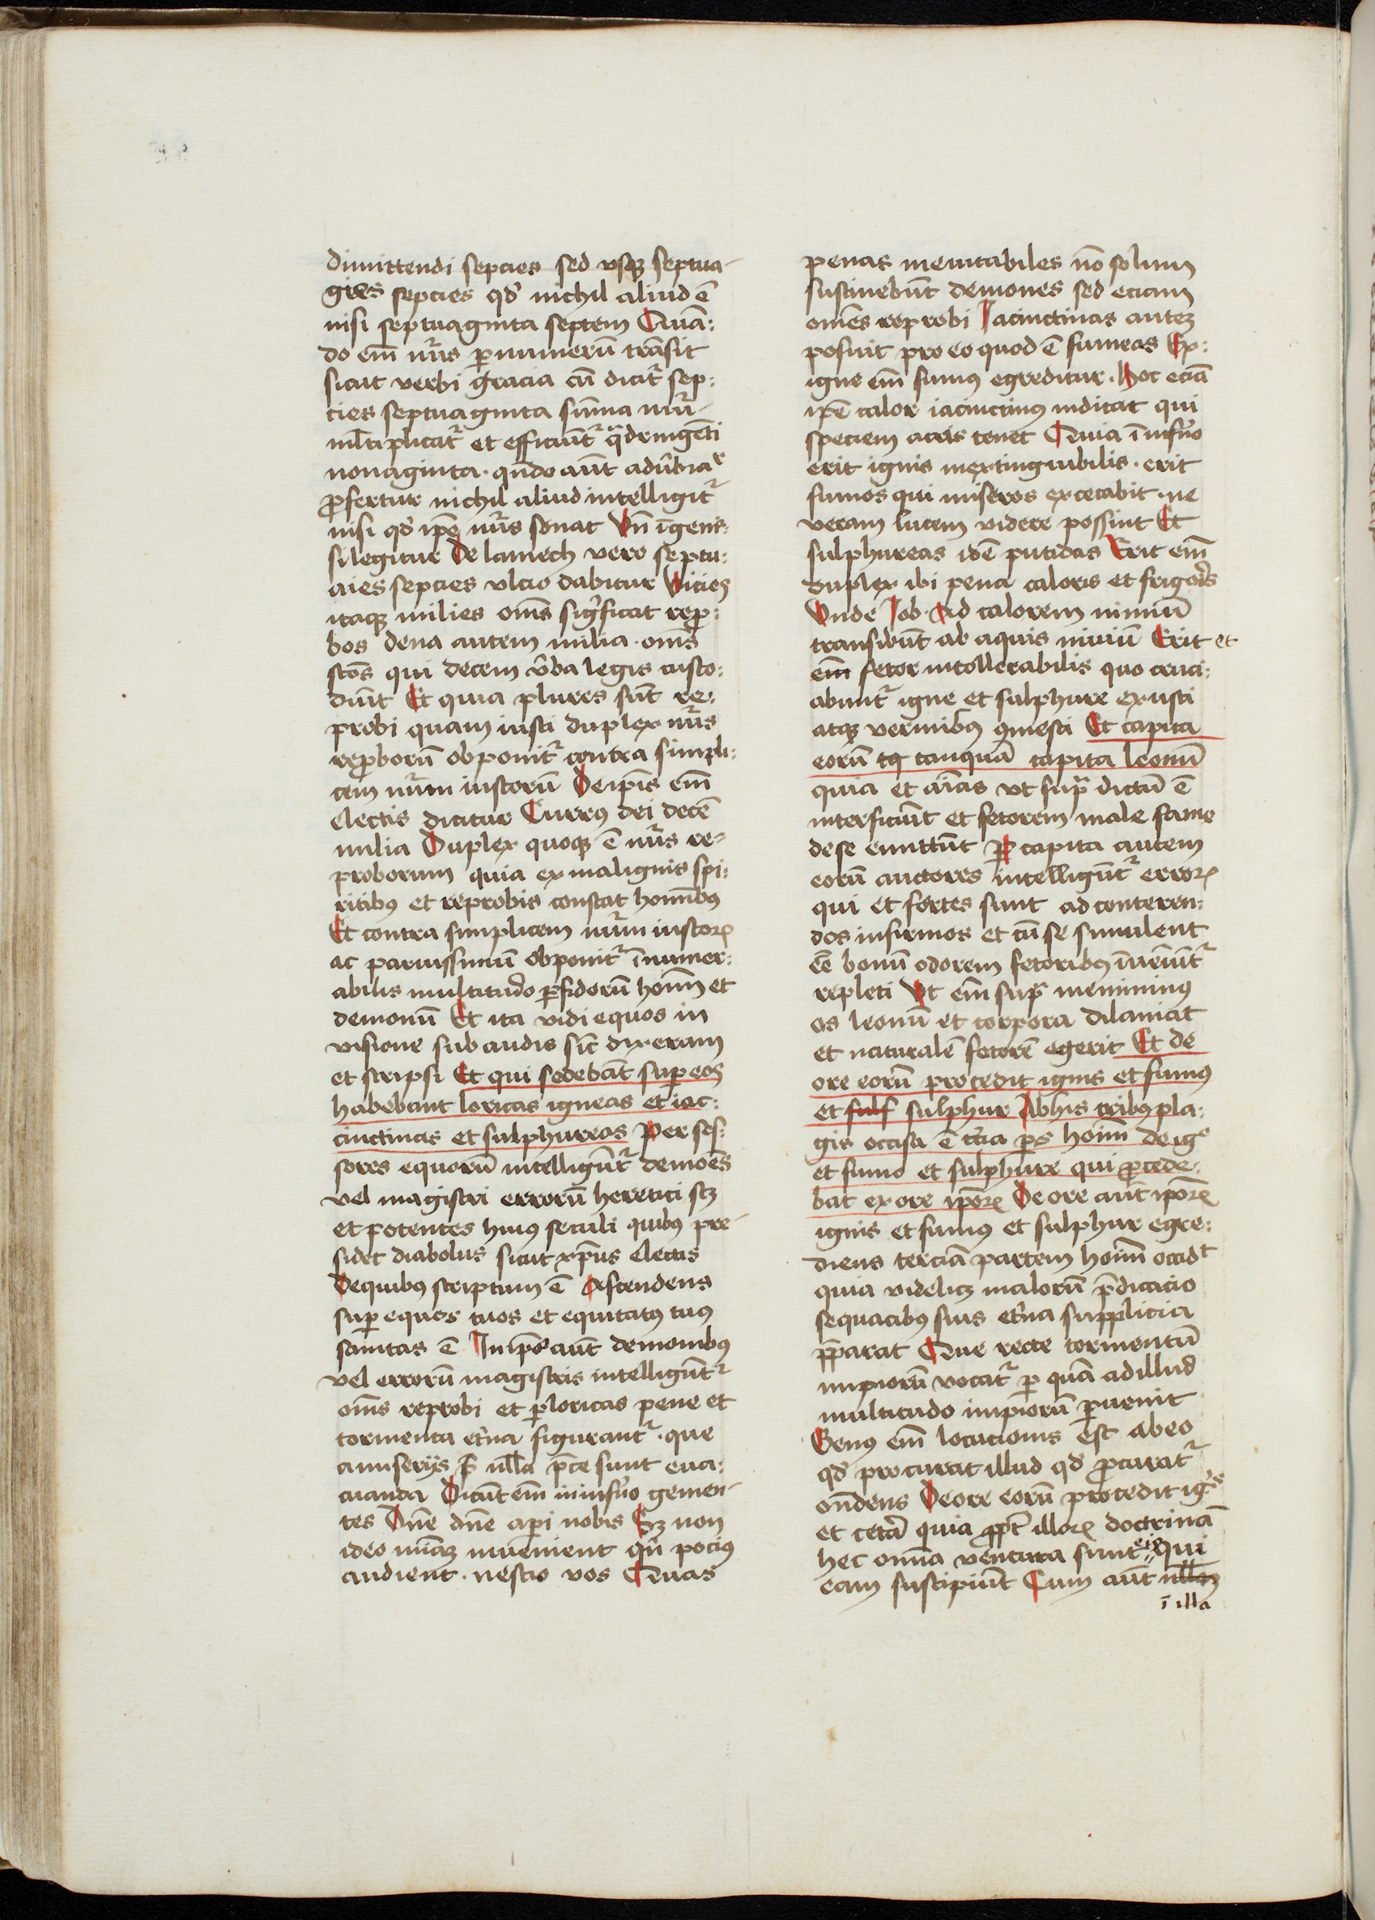 dimittendi sepcies sed vsqꝫ septua-
gies sepcies qd' nichil aliud ē
nisi septuaginta septem Quā:
do em̄ nūs per numerū trāsit
sicut verbi gracia cū dicit̉ sep:
cies septuaginta sūma nūi
ml̄tiplicat̉ et efficiūt̉ qͣdringēti
nonaginta. qn̄do aūt
ꝓfertur nichil aliud intelligit̉
nisi qd' ip̄e nūs sonat Vn̄ ī gene-
si legitur De lamech vero septu:
aies sepcies vlcio dabitur Vicies
itaqꝫ milies om̄s sig̉ficat rep̱ꝛo:
bos dena autem milia. om̄s
sctōs qui decem v̄ba legis custo:
diūt Et quia plures sūt re:
probi quam iusti duplex nūs
rep̱ꝛoborū obponit̉ contra simpli:
cem nūm iustorū De ip̄is em̄
electis dicitur Currꝰ dei decē
milia Duplex quoqꝫ ē nūs re-
proborum quia ex malignis spi:
ritibꝰ et reprobis constat hom̄ibꝰ
Et contra simplicem nūm iustoꝝ
ac paruissimū obponit̉ īnumer:
abilis multitudo ꝑfidorū hom̄ et
demonū Et ita vidi equos in
visione sub audis sic̄ dixeram
et scripsi Et qui sedebāt suꝑ eos
habebant loricas igneas et iac:
cinctinas et sulphureas Per ses:
sores equorū intelligūt̉ demōes
vel magistri errorū heretici scꝫ
et potentes huiꝰ seculi quibꝰ pre-
sidet diabolus sicut xp̄us electis
De quibꝰ scriptum ē Ascendens
suꝑ equos tuos et equitatꝰ tuꝰ
sanitas ē In ip̄is aūt demonibꝰ
vel errorū magistris intelligūt̉
om̄s reprobi et ꝑ loricas pene et
tormenta et̉na figurant̉. que
a miserijs nlla p̄ce sunt eua:
cuanda Dicūt em̄ in inf̉no gemen-
tes Dn̄e dn̄e aperi nobis Sꝫ non
ideo miāꝫ inuenient qn̄ pociꝰ
audient. nescio vos Quas
penas ineuitabiles nō solum
sustinebūt demones sed eciam
om̄es reprobi Iacinctinas autē
posuit pro eo quod ē fumeas Ex:
igne em̄ fumꝰ egreditur. Hoc eciā
ip̄e calor iacinctinꝰ indicat qui
speciem aeris tenet Quia ī inf̉no
erit ignis inextinguibilis. erit
fumos qui miseros excecabit. ne
veram lucem videre possint Et
sulphureas id ē putidas Erit em̄
duplex ibi pena caloris et frigoris
Vnde Iob. Ad calorem nimiū
transibūt ab aquis niuiū Erit et
em̄ fetor intollerabilis quo cruci:
abunt̉ igne et sulphure exusti
atqꝫ vermibꝰ ꝯmesti Et capita
eorū tq̄ tanquā capita leonū
quia et aīas vt supͣ dictū ē
interficiūt et fetorem male fame
de se emittūt Per capita autem
eorū auctores intelligūt̉ erroꝝ
qui et fortes sunt ad conteren:
dos infirmos et cū se simulent
eē bonū odorem fetoribꝰ īueniūt̉
repleti Vt em̄ supͣ meminimꝰ
os leonū et corpora dilaniat
et naturalē fetorē egerit Et de
ore eorū procedit ignis et fumꝰ
et sulf sulphur Ab his tribꝰ pla:
gis occisa ē t̉cia ꝑs hoīm de igͤ
et fumo et sulphure qui ꝓcede:
bat ex ore ip̄oꝝ De ore aūt ip̄oꝝ
ignis et fumꝰ et sulphur egre:
diens terciā partem hoīm occidᵗ
quia videlicꝫ malorū p̄dicacio
sequacibꝰ suis et̉na supplicia
p̄parat Que recte tormentū
impiorū vocat̉ ꝑ quā ad illud
multitudo impiorū ꝑuenit
Genꝰ em̄ locucionis est ab eo
qd' procurat illud qd' ꝓcurat̉
on̄dens De ore eorū procedit igͥs
et cetā quia ꝓpt̉ illoꝝ doctrinā
hec om̄a ventura sunt eis qui
eam suscipiūt Cum aūt nllm
ī illa